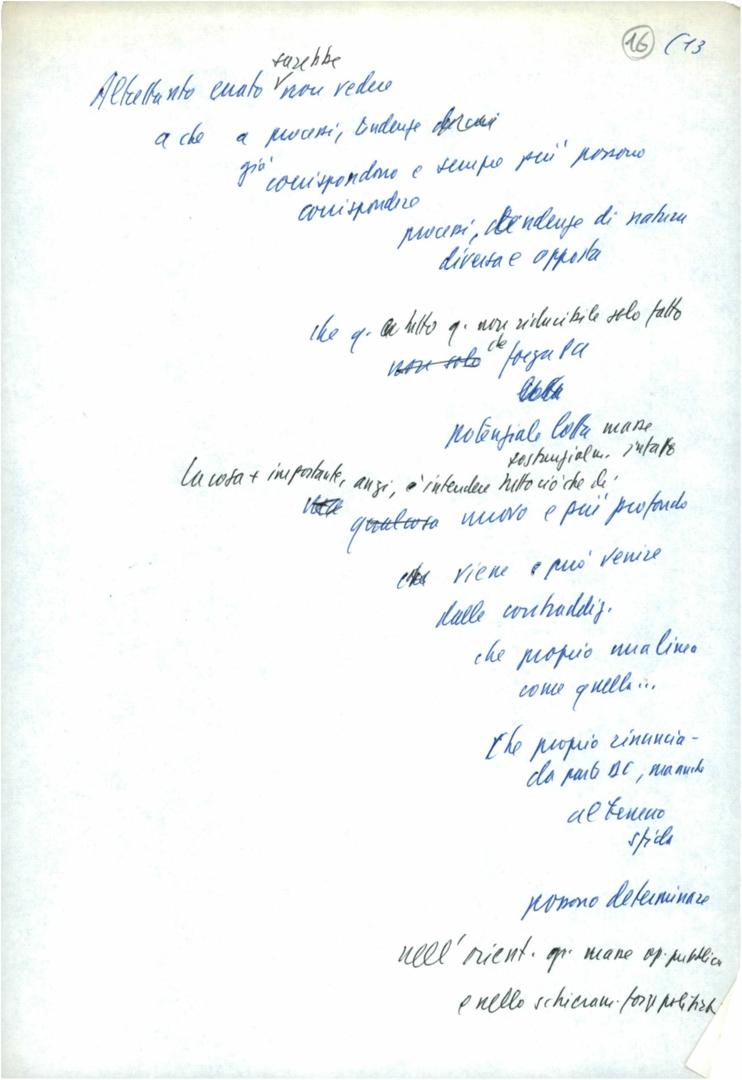 16 (13
sarebbe
Altrettanto errato non vedere
a che a processi, tendenze
già corrispondono e sempre più possono
corrispondere
processi, tendenze di natura
diversa e opposta
che q. tutto q. non riducibile solo fatto
non solo de forza PCI
lotta
potenziale lotta masse
sostanzialm. intatto
La cosa + importante, anzi, è intendere tutto ciò che di
qualcosa nuovo e più profondo
che viene e può venire
dalle contraddiz.
che proprio una linea
come quella...
che proprio rinuncia-
da parte DC, ma anche
al terreno
sfida
possono determinare
nell'orient. gr. masse op. pubblica
e nello schieram. forze politiche